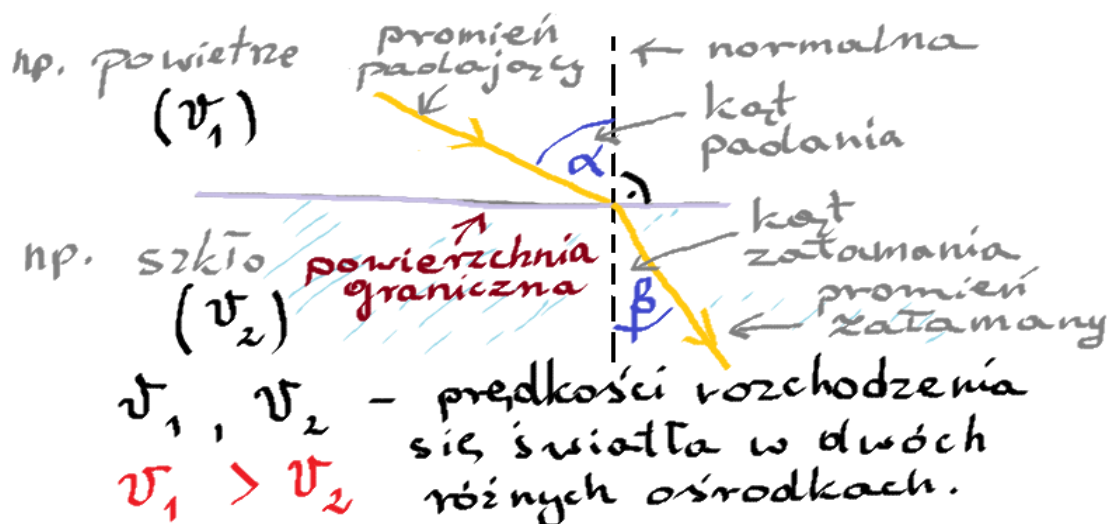 np. powietrze
(v₁)
promień
padający
normalna
kąt
padania
α
np. szkło
(v₂)
powierzchnia
graniczna
kąt
załamania
β
promień
załamany
v₁, v₂ – prędkości rozchodzenia
się światła w dwóch
różnych ośrodkach.
v₁ > v₂